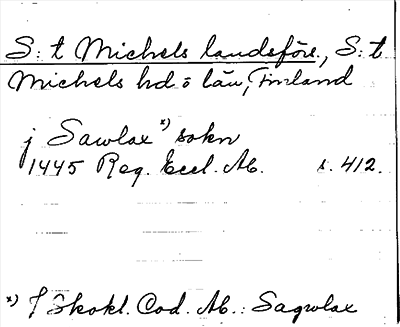 S:t Michels landsförs., S:t
Michels hd o län, Finland
j Sawlax *) sokn
1445 Reg. Eccl. Ab. s. 412.
*) I Skokl. Cod. Ab.: Sagwlax